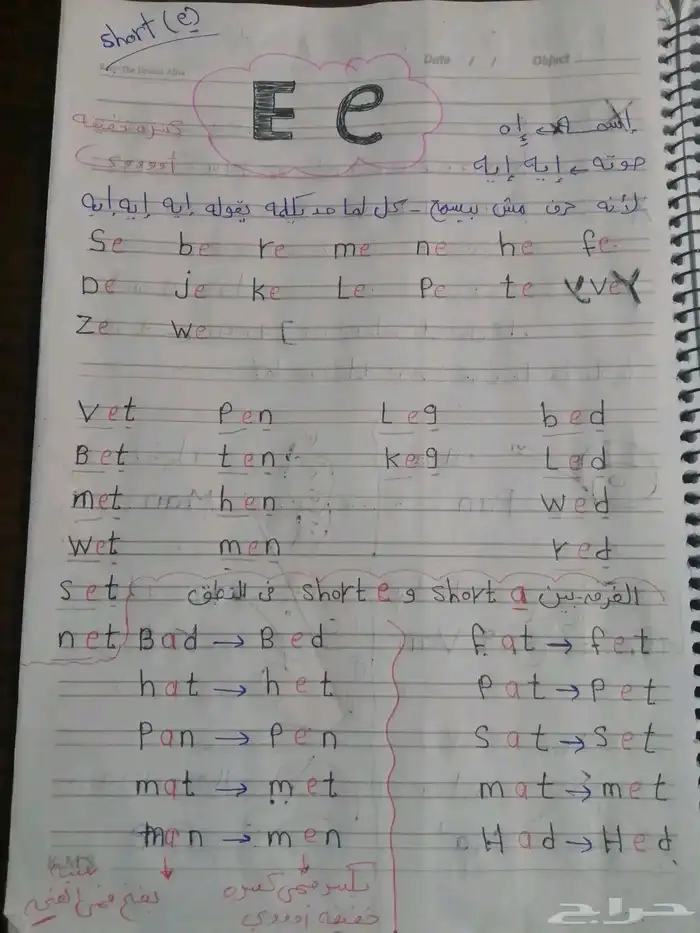 short (e)
Date / / Object
E e
إسمه ← إه كسرة خفيفة
صوته ← إيه إيه
لأنه حرف مش بيسمع - كل لما حد يكلمه يقوله إيه إيه إيه
Se be re me ne he fe
De je ke Le Pe te ve
Ze we
Vet Pen Leg bed
Bet ten keg Led
met hen wed
wet men red
set الفرق بين short a و short e في النطق
net Bad → Bed fat → fet
hat → het Pat → Pet
Pan → Pen Sat → Set
mat → met mat → met
man → men Had → Hed
بفتح فمي بكسر فمي كسرة
خفيفة
حراج